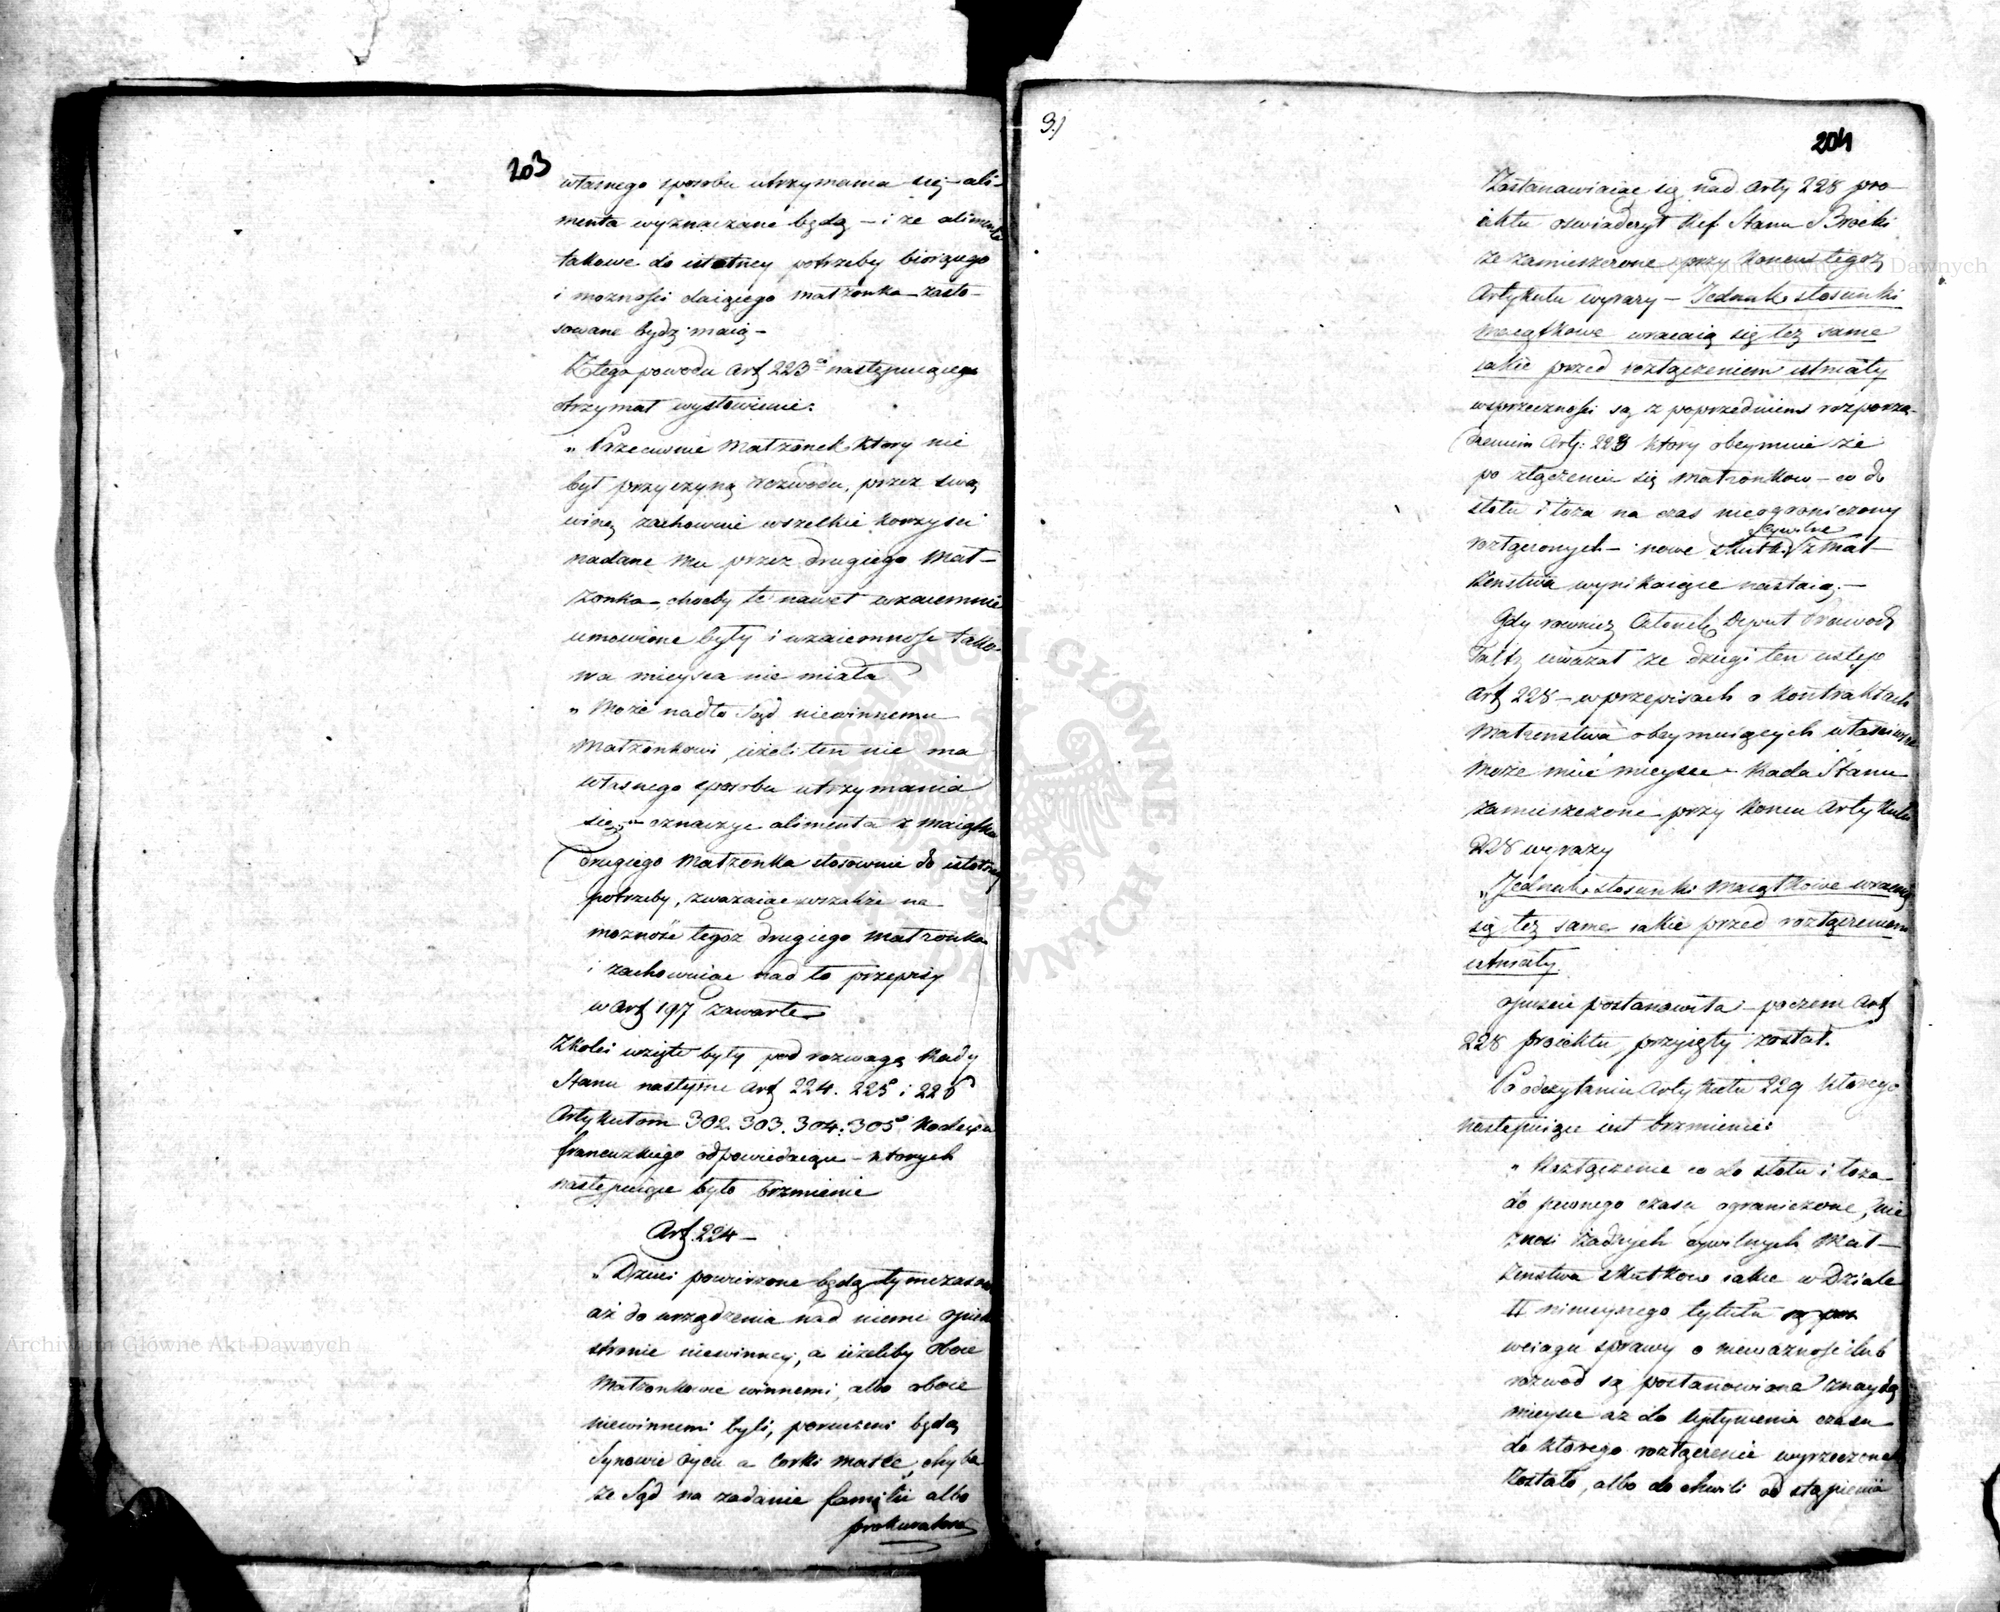 203
własnego sposobu utrzymania się – ali-
menta wyznaczane będą – i że alimenta
takowe do istotney potrzeby biorącego
i możności daiącego małżonka zasto-
sowane bydź maią –
Z tego powodu Art 223 następuiące
otrzymał wysłowienie:
„ Przeciwnie Małżonek który nie
był przyczyną rozwodu, przez swą
winę zachowuie wszelkie korzyści
nadane mu przez drugiego Mał-
żonka, choćby te nawet wzaiemnie
umówione były i wzaiemność tako-
wa mieysca nie miała
„ Może nadto Sąd niewinnemu
Małżonkowi, ieżeli ten nie ma
własnego sposobu utrzymania
się, oznaczyć alimenta z maiątku
drugiego Małżonka stosownie do istotney
potrzeby, zważaiąc wszakże na
możność tegoż drugiego Małżonka
i zachowuiąc nad to przepisy
w Art 197 zawarte
Z kolei wzięte były pod rozwagę Rady
Stanu następne Art 224. 225 i 226
Artykułom 302. 303. 304. 305 Kodexu
francuzkiego odpowiedaiące – których
następuiące było brzmienie
Art. 224 –
„ Dzieci powierzone będą tymczasowo
aż do urządzenia nad niemi opieki
stronie niewinney, a ieżeliby oboie
Małżonkowie winnemi, albo oboie
niewinnemi byli, poruczeni będą
Synowie Oycu a Corki Matce, chyba
że Sąd na żądanie familii albo
prokuratora
3)
204
Zastanawiaiąc się nad Arty 228 pro-
iektu oświadczył Ref. Stanu Brocki
że zamieszczone przy końcu tegoż
Artykułu wyrazy – Jednak stosunki
maiątkowe wracaią się też same
iakie przed rozłączeniem istniały
wsprzeczności są z poprzedniem rozporzą-
dzeniem Arty: 228 który obeymuie że
po złączeniu się Małżonków – co do
stołu i łoża na czas nieograniczony
Cywilne
rozłączonych – nowe skutki z Mał-
żeństwa wynikaiące nastaią. –
Gdy również Członek Deput Prawod
uważał że drugi ten ustęp
Art 228 – w przepisach o kontraktach
Małżeństwa obeymuiących właściwsze
może mieć mieysce – Rada Stanu
zamieszczone przy końcu Artykułu
228 wyrazy
„ Jednak stosunki maiątkowe wracaią
się też same iakie przed rozłączeniem
istniały.
opuścić postanowiła – poczem Art
228 proiektu przyięty został.
Po odczytaniu Artykułu 229 którego
następuiące iest brzmienie:
„ Rozłączenie co do stołu i łoża
do pewnego czasu ograniczone, nie
znosi żadnych cywilnych Mał-
żeństwa skutków iakie w Dziale
II ninieyszego tytułu
wciągu sprawy o nieważność lub
rozwód są postanowione znaydą
mieysce aż do upłynienia czasu
do którego rozłączenie wyrzeczone
zostało, albo do chwili odstąpienia